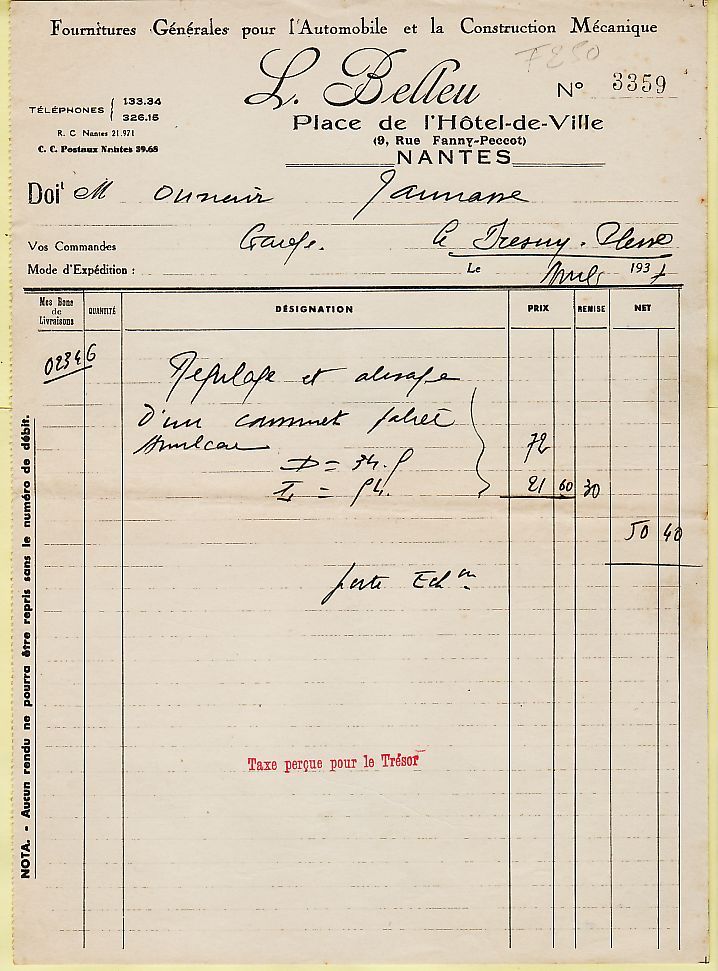 Fournitures Générales pour l'Automobile et la Construction Mécanique
F250
L. Belleu
N° 3359
TÉLÉPHONES { 133.34
326.15
R. C. Nantes 21.971
C. C. Postaux Nantes 39.65
Place de l'Hôtel-de-Ville
(9, Rue Fanny-Peccot)
NANTES
Doit M
Vos Commandes Garage. Le
Mode d'Expédition :
Le 1937
Mes Bons de Livraisons QUANTITÉ DÉSIGNATION PRIX REMISE NET
02346
Régulage et alésage
D'un coussinet
Amilcar 72
D = 34.5
L = 54. 21 60 30
50 40
porte Ech on
Taxe perçue pour le Trésor
NOTA. - Aucun rendu ne pourra être repris sans le numéro de débit.